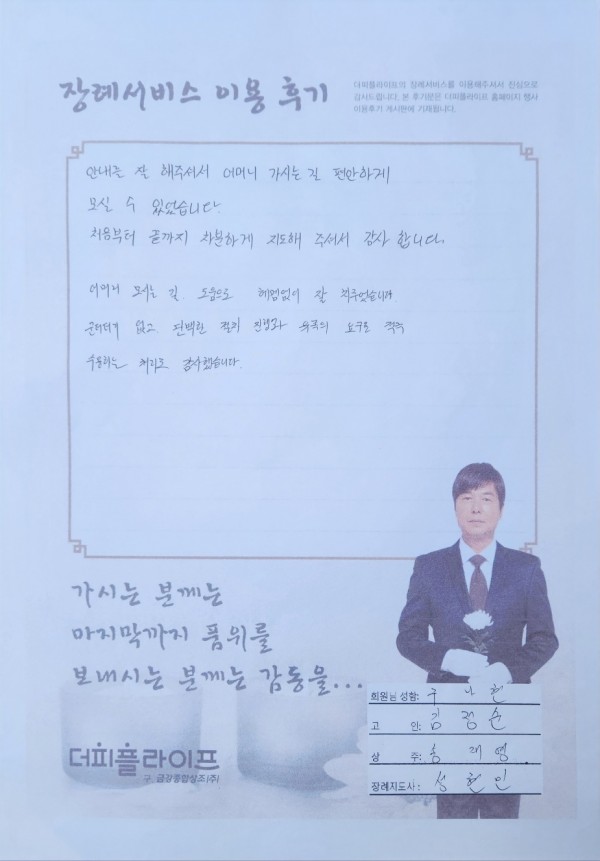 장례서비스 이용 후기
더피플라이프의 장례서비스를 이용해주셔서 진심으로
감사드립니다. 본 후기글은 더피플라이프 홈페이지 행사
이용후기 게시판에 기재됩니다.
안내를 잘 해주셔서 어머니 가시는 길 편안하게
모실 수 있었습니다.
처음부터 끝까지 차분하게 지도해 주셔서 감사 합니다.
어머니 모시는 길. 도움으로 잘 치루었습니다.
군더더기 없고 담백한 절차 진행과 유족의 요구도 적극
수용하는 감사했습니다.
가시는 분께는
마지막까지 품위를
보내시는 분께는 감동을...
더피플라이프
구. 금강종합상조(주)
회원님 성함: 구 현
고 인: 김 정 순
상 주: 송 재 영
장례지도사: 성 현 인